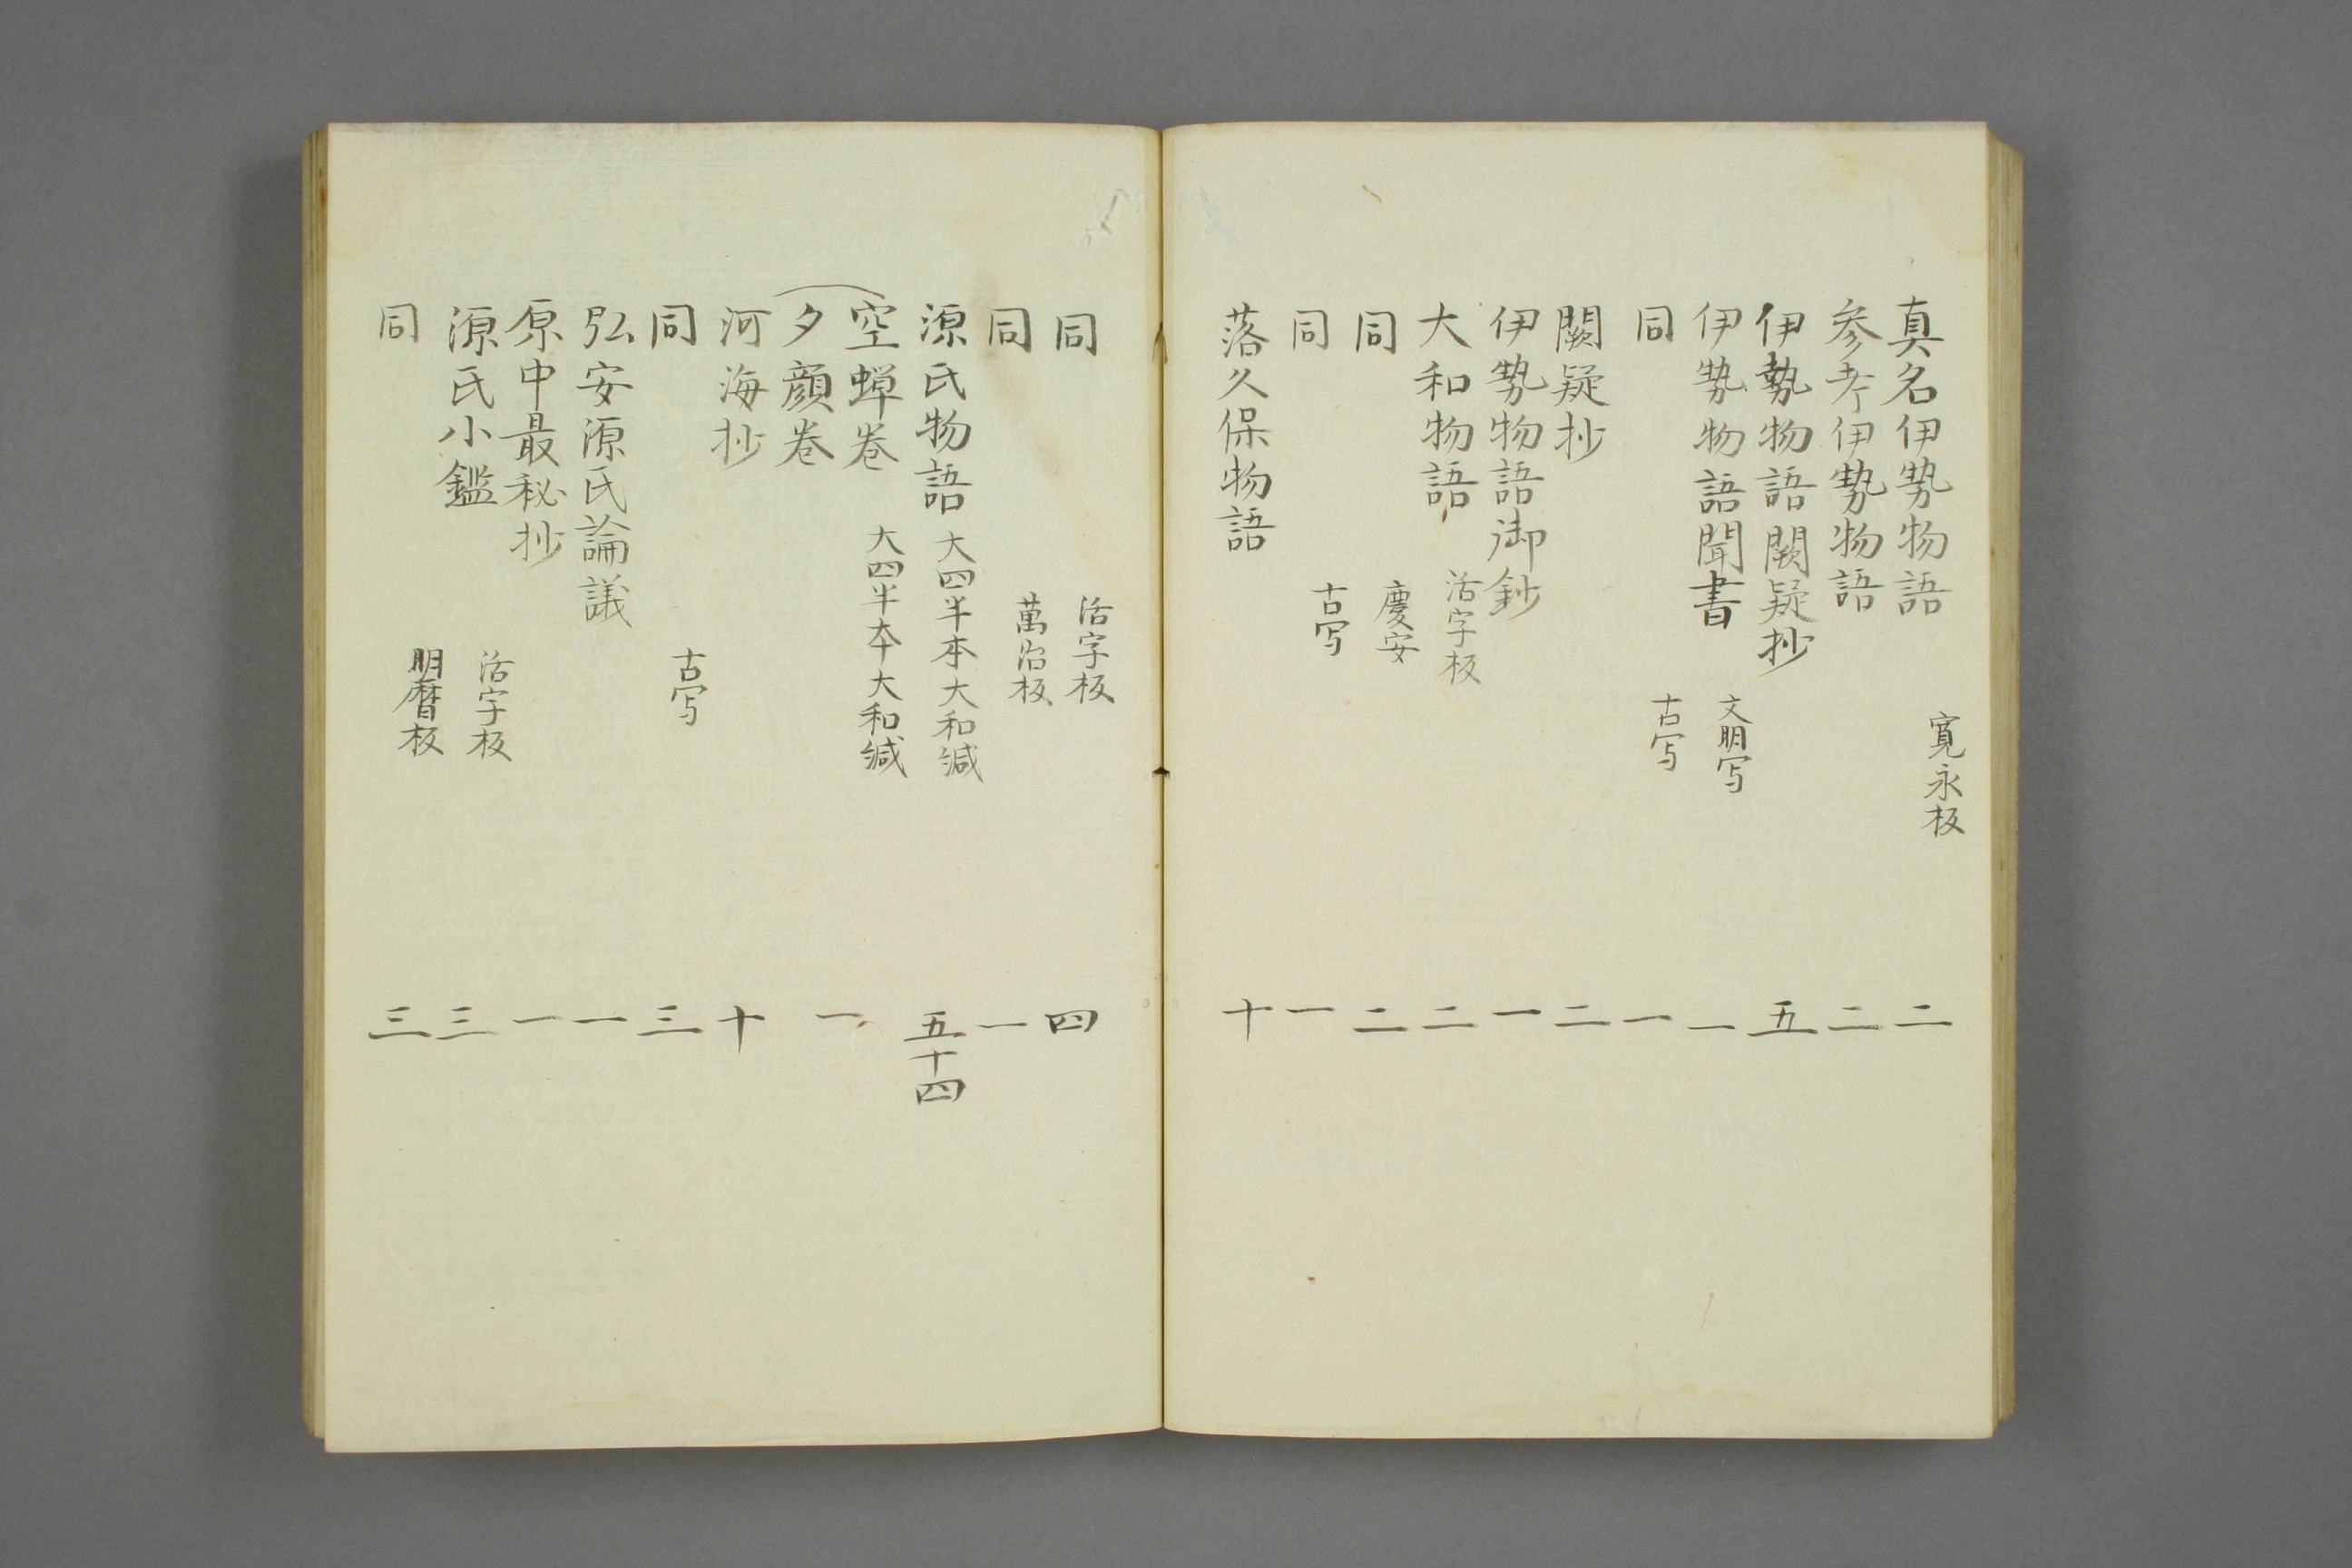 真名伊勢物語 寛永板 二
参考伊勢物語 二
伊勢物語闕疑抄 五
伊勢物語聞書 文明写 一
同 古写 一
闕疑抄 二
伊勢物語御鈔 一
大和物語 活字板 二
同 慶安 二
同 古写 一
落久保物語 十
同 活字板 四
同 萬治板 一
源氏物語 大四半本大和緘 五十四
空蝉巻 大四半本大和緘
夕顔巻 一
河海抄 十
同 古写 三
弘安源氏論議 一
原中最秘抄 一
源氏小鑑 活字板 三
同 明暦板 三